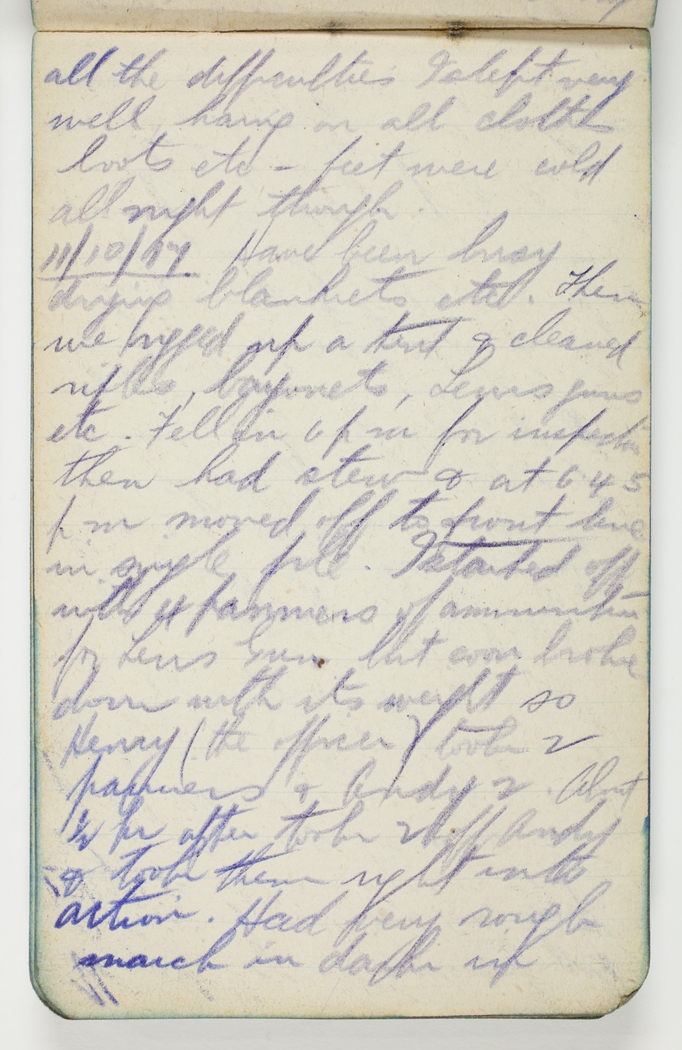 all the difficulties I slept very
well, having on all clothes
boots etc - feet were cold
all night though.
11/10/17 Have been busy
drying blankets etc. Then
we rigged up a tent & cleaned
rifles, bayonets, Lewis guns
etc. Fell in 6 pm for inspection
then had stew & at 6 45
pm moved off to front line
in single file. I started off
with 4 panniers of ammunition
for Lewis Gun, but soon broke
down with its weight so
Henry (the officer) took 2
panniers & Andy 2. About
½ hr after took 2 off Andy
& took them right into
action. Had very rough
march in dark up